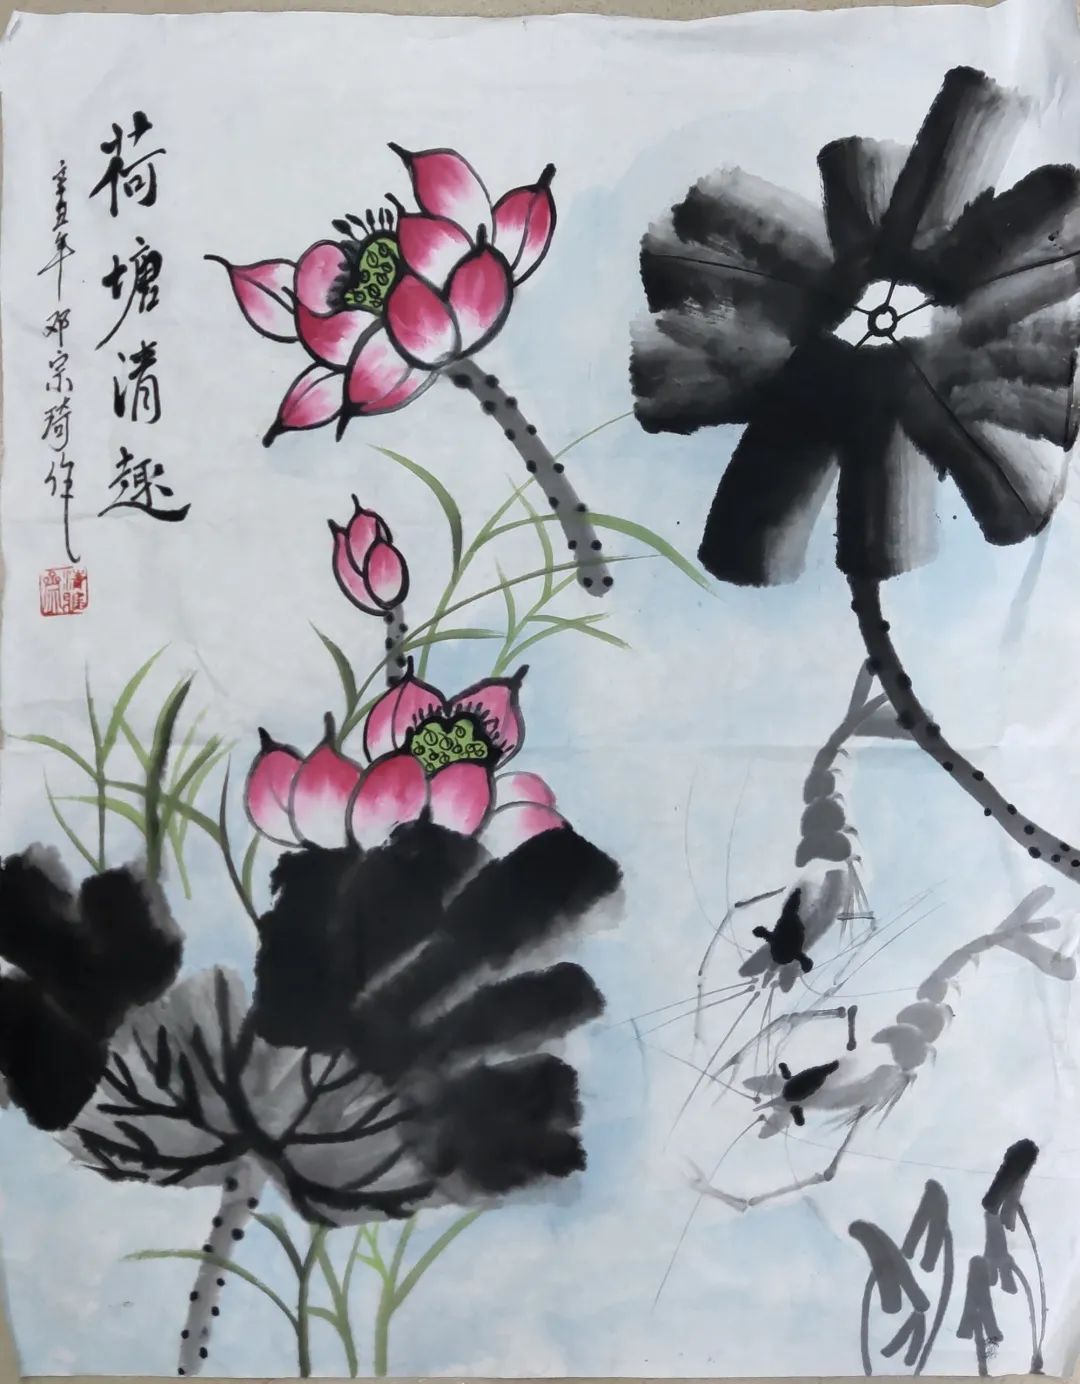 荷塘清趣
辛丑年 邓宗琦作